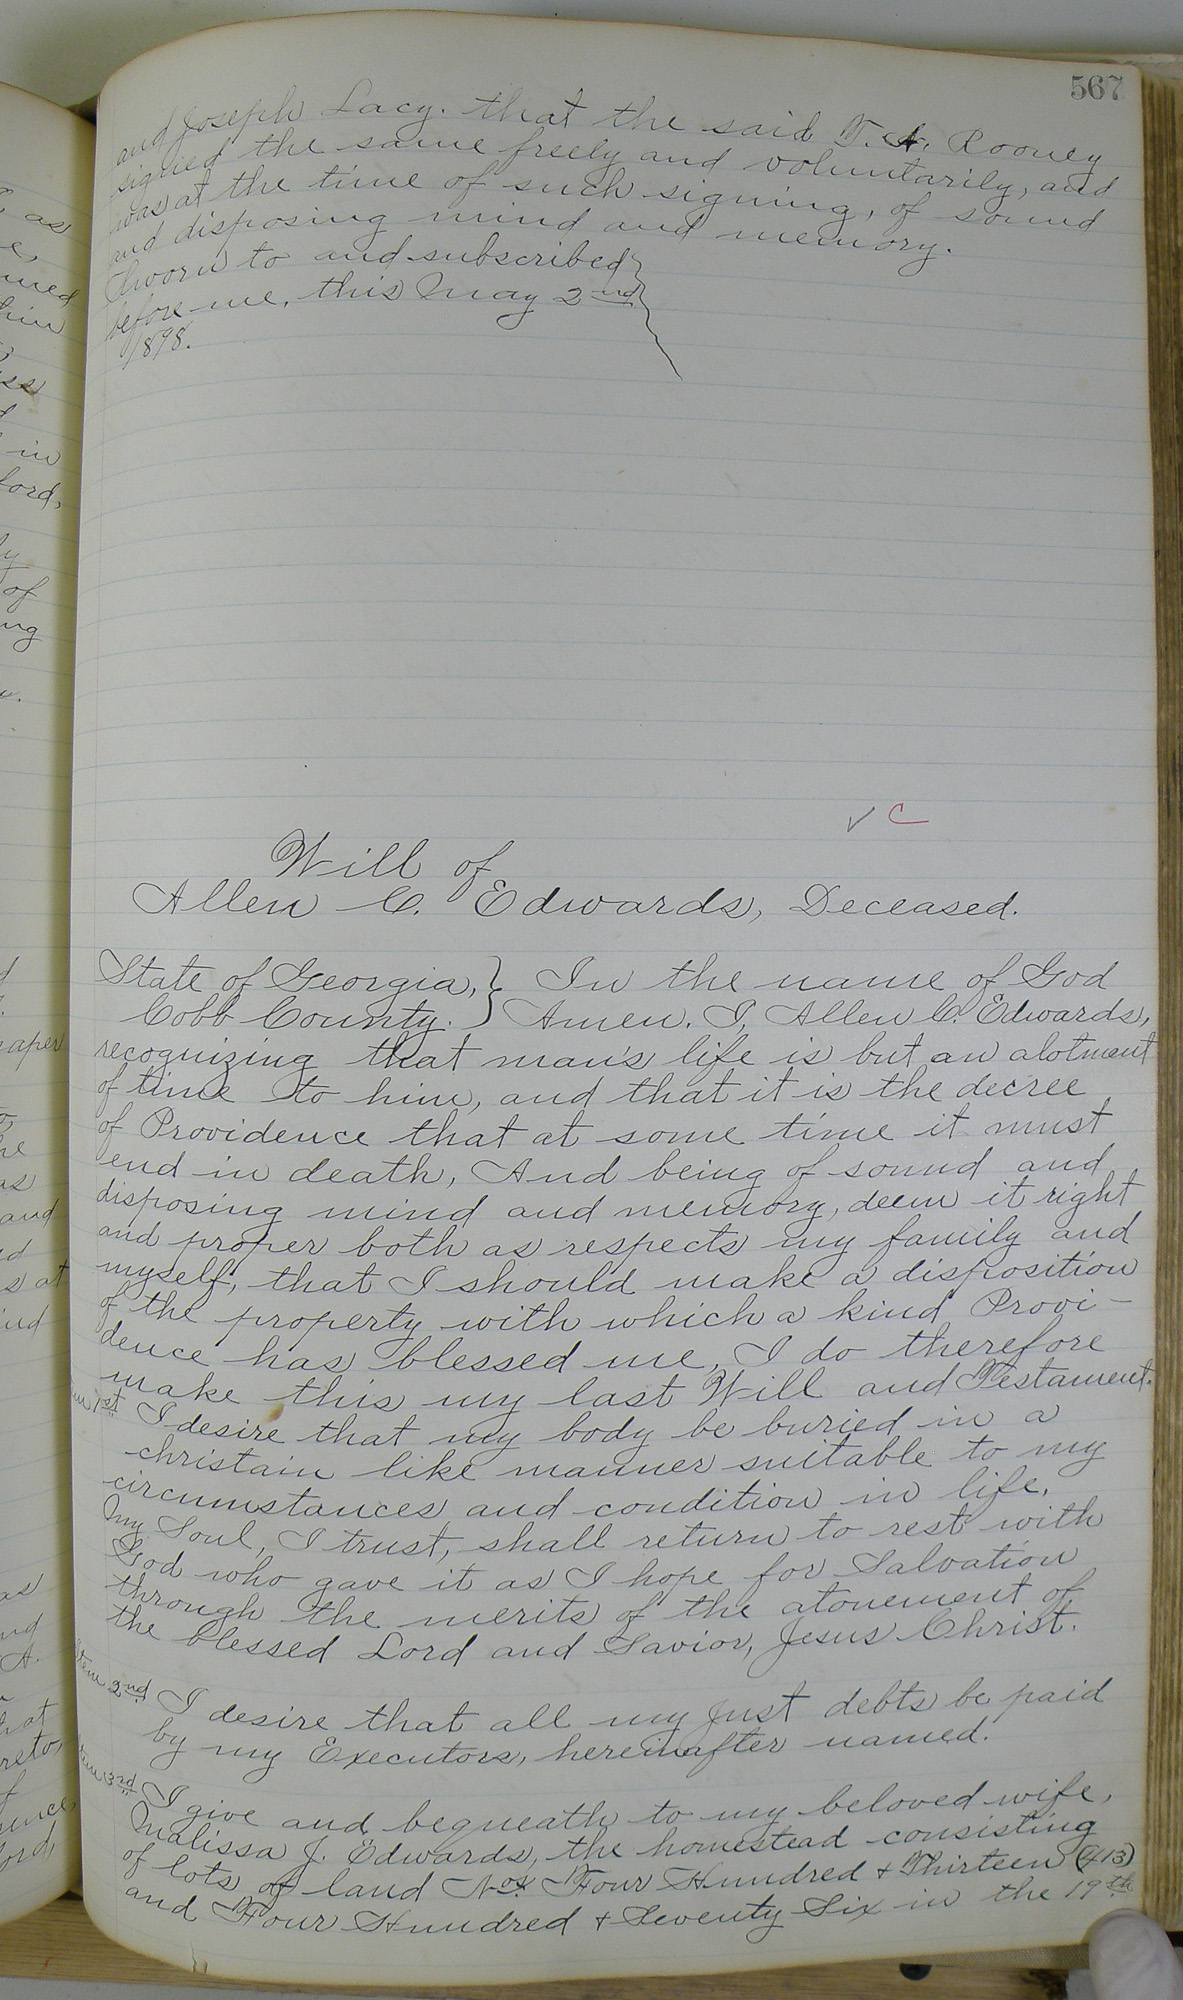 567
and Joseph Lacy. that the said T. A. Rooney
signed the same freely and voluntarily, and
was at the time of such signing, of sound
and disposing mind and memory.
Sworn to and subscribed
before me, this May 2nd
1898.
✓ C
Will of
Allen C. Edwards, Deceased.
State of Georgia, } In the name of God
Cobb County. } Amen. I, Allen C. Edwards,
recognizing that man's life is but an alotment
of time to him, and that it is the decree
of Providence that at some time it must
end in death, And being of sound and
disposing mind and memory, deem it right
and proper both as respects my family and
myself, that I should make a disposition
of the property with which a kind Provi-
dence has blessed me, I do therefore
make this my last Will and Testament.
Item 1st I desire that my body be buried in a
christain like manner suitable to my
circumstances and condition in life.
My Soul, I trust, shall return to rest with
God who gave it as I hope for Salvation
through the merits of the atonement of
the blessed Lord and Savior, Jesus Christ.
Item 2nd I desire that all my just debts be paid
by my Executors, hereinafter named.
Item 3rd I give and bequeath to my beloved wife,
Malissa J. Edwards, the homestead consisting
of lots of land Nos Four Hundred & Thirteen (413)
and Four Hundred & Seventy Six in the 19th